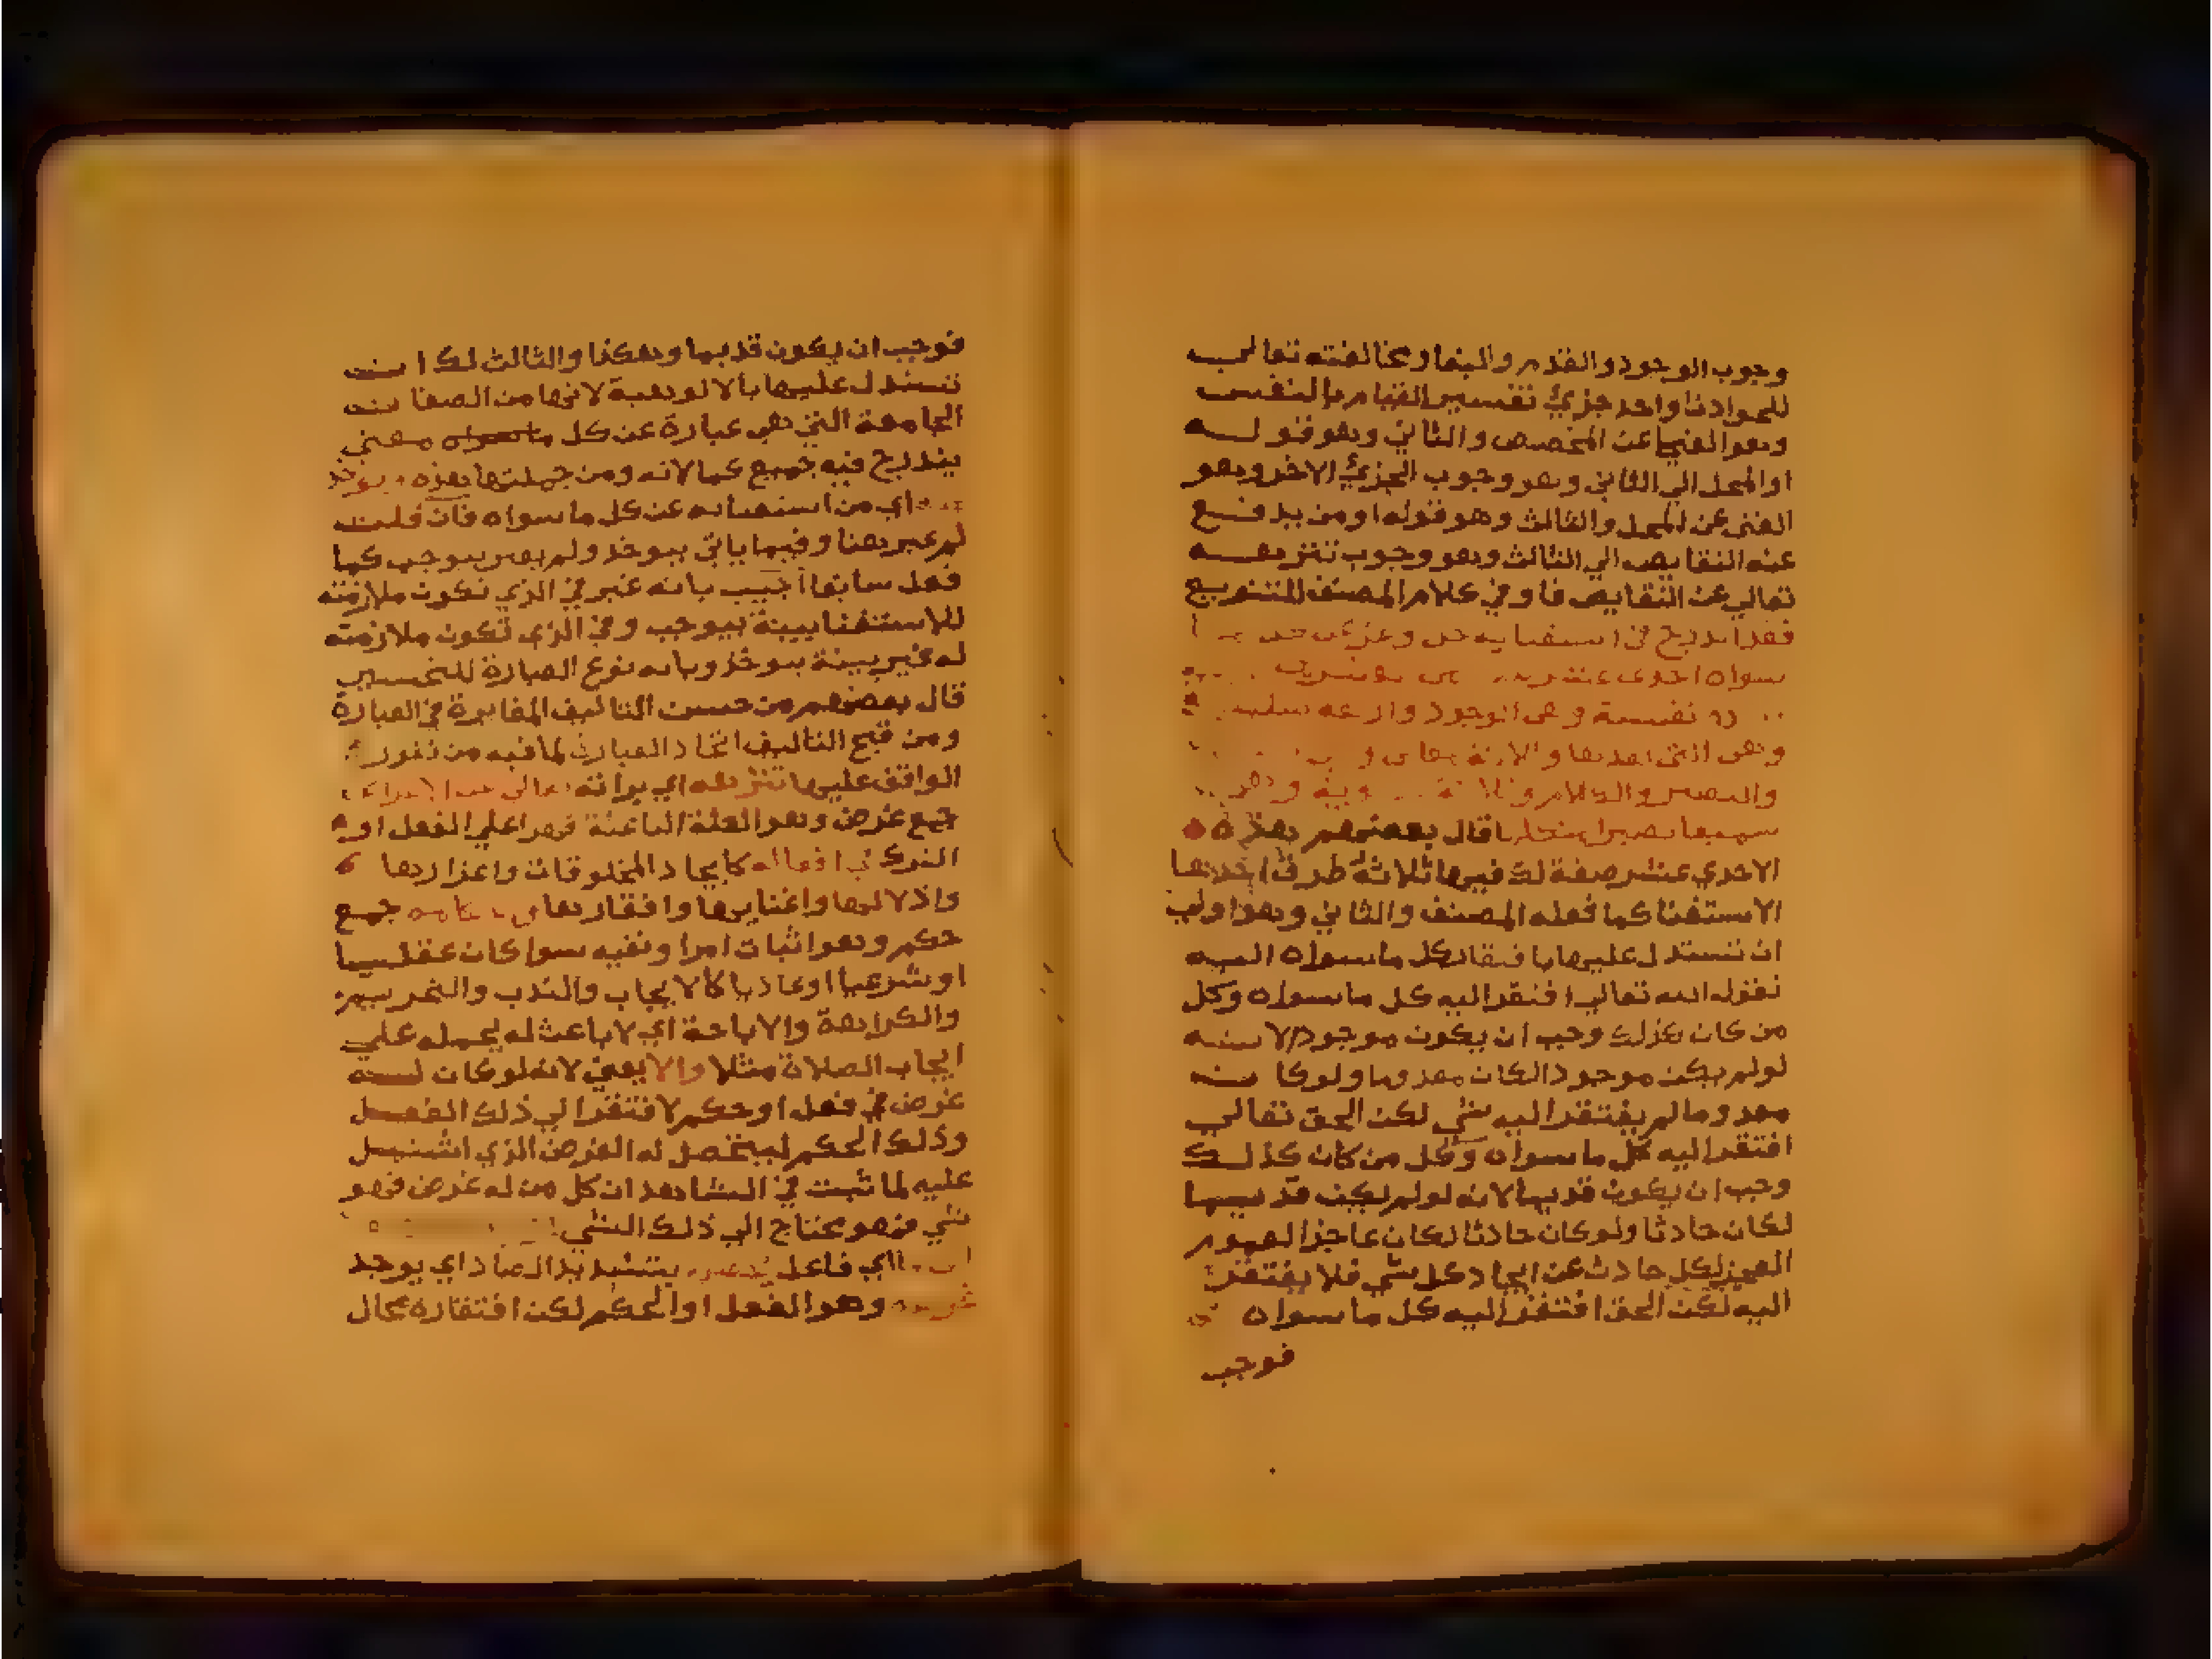 وجوب الوجود والقدم والبقا ومخالفته تعالى
للحوادث واحد جزئ تفسير القيام بالنفس
وهو الغني عن المخصص والثاني وهو قوله
او المحل الي الثاني وهو وجوب الجزئ الاخر وهو
الغني عن المحل والثالث وهو قوله او من يدفع
عنه النقايص الي الثالث وهو وجوب تنزيهه
تعالي عن النقايص فاو في كلام المصنف للتنويع
فقد اندرج في استغنايه جل وعز عن كل ما
سواه احدى عشرة
نفسية وهي الوجود واربعة سلبية
وهي التي بعدها
والبصر والكلام وثلاثة وهي
سميعا بصيرا متكلما قال بعضهم هذه
الاحدي عشر صفة لك فيها ثلاثة طرق احدها
الاستغنا كما فعله المصنف والثاني وهو اولي
ان تستدل عليها بافتقار كل ما سواه اليه
تقول الله تعالي افتقر اليه كل ما سواه وكل
من كان كذلك وجب ان يكون موجودا لانه
لو لم يكن موجودا لكان معدوما ولو كان
معدوما لم يفتقر اليه شي لكن الحق تعالي
افتقر اليه كل ما سواه وكل من كان كذلك
وجب ان يكون قديما لانه لو لم يكن قديما
لكان حادثا ولو كان حادثا لكان عاجزا لعموم
العجز لكل حادث عن ايجاد كل شي فلا يفتقر
اليه لكن الحق افتقر اليه كل ما سواه
فوجب
فوجب ان يكون قديما وهكذا والثالث لك ان
تستدل عليها بالالوهية لانها من الصفات
الجامعة التي هي عبارة عن كل معني
يندرج فيه جميع كمالاته ومن جملتها هذه ويوخذ
اي من استغنايه عن كل ما سواه فان قلت
لم عبر هنا وفيما ياتي بيوخذ ولم يعبر بيوجب كما
فعل سابقا اجيب بانه عبر في الذي تكون ملازمته
للاستغنا بينة بيوجب وفي الذي تكون ملازمته
له غير بينة بيوخذ وبانه نوع العبارة للتحسين
قال بعضهم من حسن التاليف المغايرة في العبارة
ومن قبح التاليف اتحاد العبارة لما فيه من نفور
الواقف عليها تنزيهه اي براته تعالى عن الاغراض
جمع غرض وهو العلة الباعثة قهرا علي الفعل او
الترك في افعاله كايجاد المخلوقات واعزازها
واذلالها واغنايها وافقارها جمع
حكم وهو اثبات امر او نفيه سوا كان عقليا
او شرعيا او عاديا كالايجاب والندب والتحريم
والكراهة والاباحة اي لا باعث له يحمله علي
ايجاب الصلاة مثلا والا يعني لانه لو كان له
غرض في فعل او حكم لافتقر الي ذلك الفعل
وذلك الحكم ليتحصل له الغرض الذي اشتمل
عليه لما ثبت في الشاهد ان كل من له غرض فهو
شي فهو محتاج الي ذلك الشي
اي فاعل يتشديد الصاد اي يوجد
غرضه وهو الفعل او الحكم لكن افتقاره محال